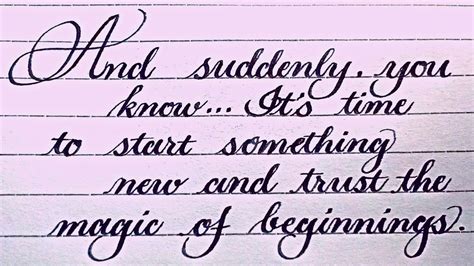 And suddenly. you
know... It's time
to start something
new and trust the
magic of beginnings.